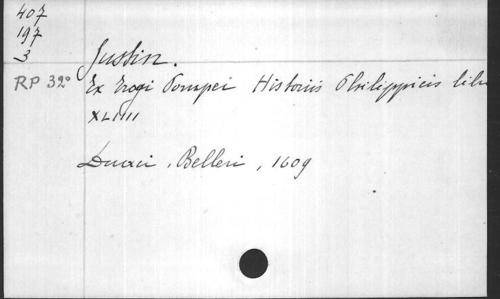 407
197
3
Justin.
RP 32° Ex Trogi Pompei Historiis Philippicis libri
XLIIII
Duaci, Belleri, 1609